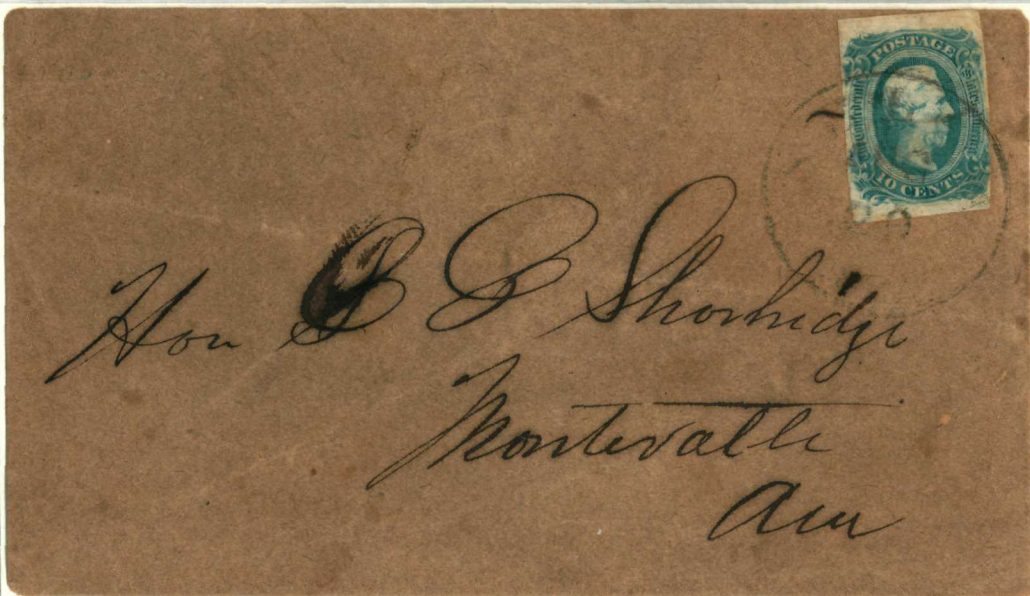 POSTAGE
The Confederate States of America
10 CENTS
Hon Shorhidge
Montevalle